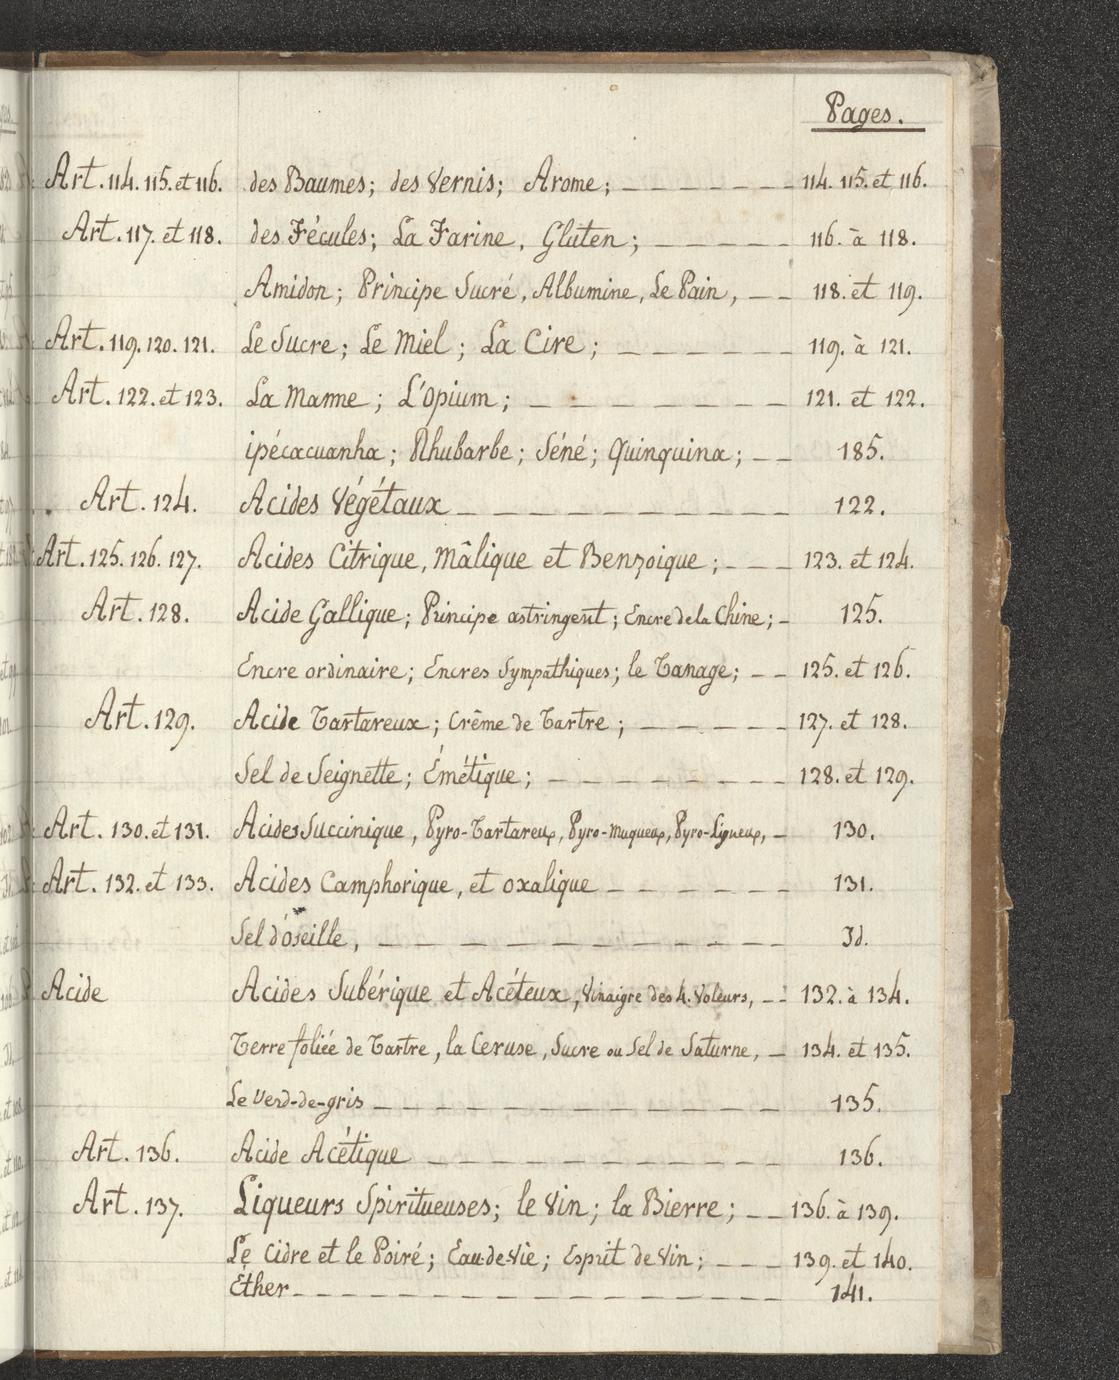 Pages.
Art. 114. 115. et 116. des Baumes; des Vernis; Arome; _ _ _ _ _ _ _ 114. 115. et 116.
Art. 117. et 118. des Fécules; La Farine, Gluten; _ _ _ _ _ 116. à 118.
Amidon; Principe Sucré, Albumine, Le Pain, _ _ 118. et 119.
Art. 119. 120. 121. Le Sucre; Le Miel; La Cire; _ _ _ _ _ _ 119. à 121.
Art. 122. et 123. La Manne; L'Opium; _ _ _ _ _ _ _ _ 121. et 122.
ipécacuanha; Rhubarbe; Séné; Quinquina; _ _ 185.
Art. 124. Acides Végétaux _ _ _ _ _ _ _ _ _ _ 122.
Art. 125. 126. 127. Acides Citrique, Mâlique et Benzoique; _ _ _ 123. et 124.
Art. 128. Acide Gallique; Principe astringent; Encre de la Chine; _ 125.
Encre ordinaire; Encres Sympathiques; le Tanage; _ _ 125. et 126.
Art. 129. Acide Tartareux; Crême de Tartre; _ _ _ _ _ 127. et 128.
Sel de Seignette; Émétique; _ _ _ _ _ _ _ _ 128. et 129.
Art. 130. et 131. Acides Succinique, Pyro-Tartareux, Pyro-Muqueux, Pyro-Ligneux, _ 130.
Art. 132. et 133. Acides Camphorique, et oxalique _ _ _ _ _ _ 131.
Sel d'oseille, _ _ _ _ _ _ _ _ _ _ _ _ Id.
Acide Acides Subérique et Acéteux, Vinaigre des 4. Voleurs, _ _ 132. à 134.
Terre foliée de Tartre, la Ceruse, Sucre ou Sel de Saturne, _ 134. et 135.
Le Verd-de-gris _ _ _ _ _ _ _ _ _ _ _ _ 135.
Art. 136. Acide Acétique _ _ _ _ _ _ _ _ _ _ _ 136.
Art. 137. Liqueurs Spiritueuses; le Vin; la Bierre; _ _ 136. à 139.
Le Cidre et le Poiré; Eau-de-Vie; Esprit de Vin; _ _ _ 139. et 140.
Ether _ _ _ _ _ _ _ _ _ _ _ _ _ _ _ 141.